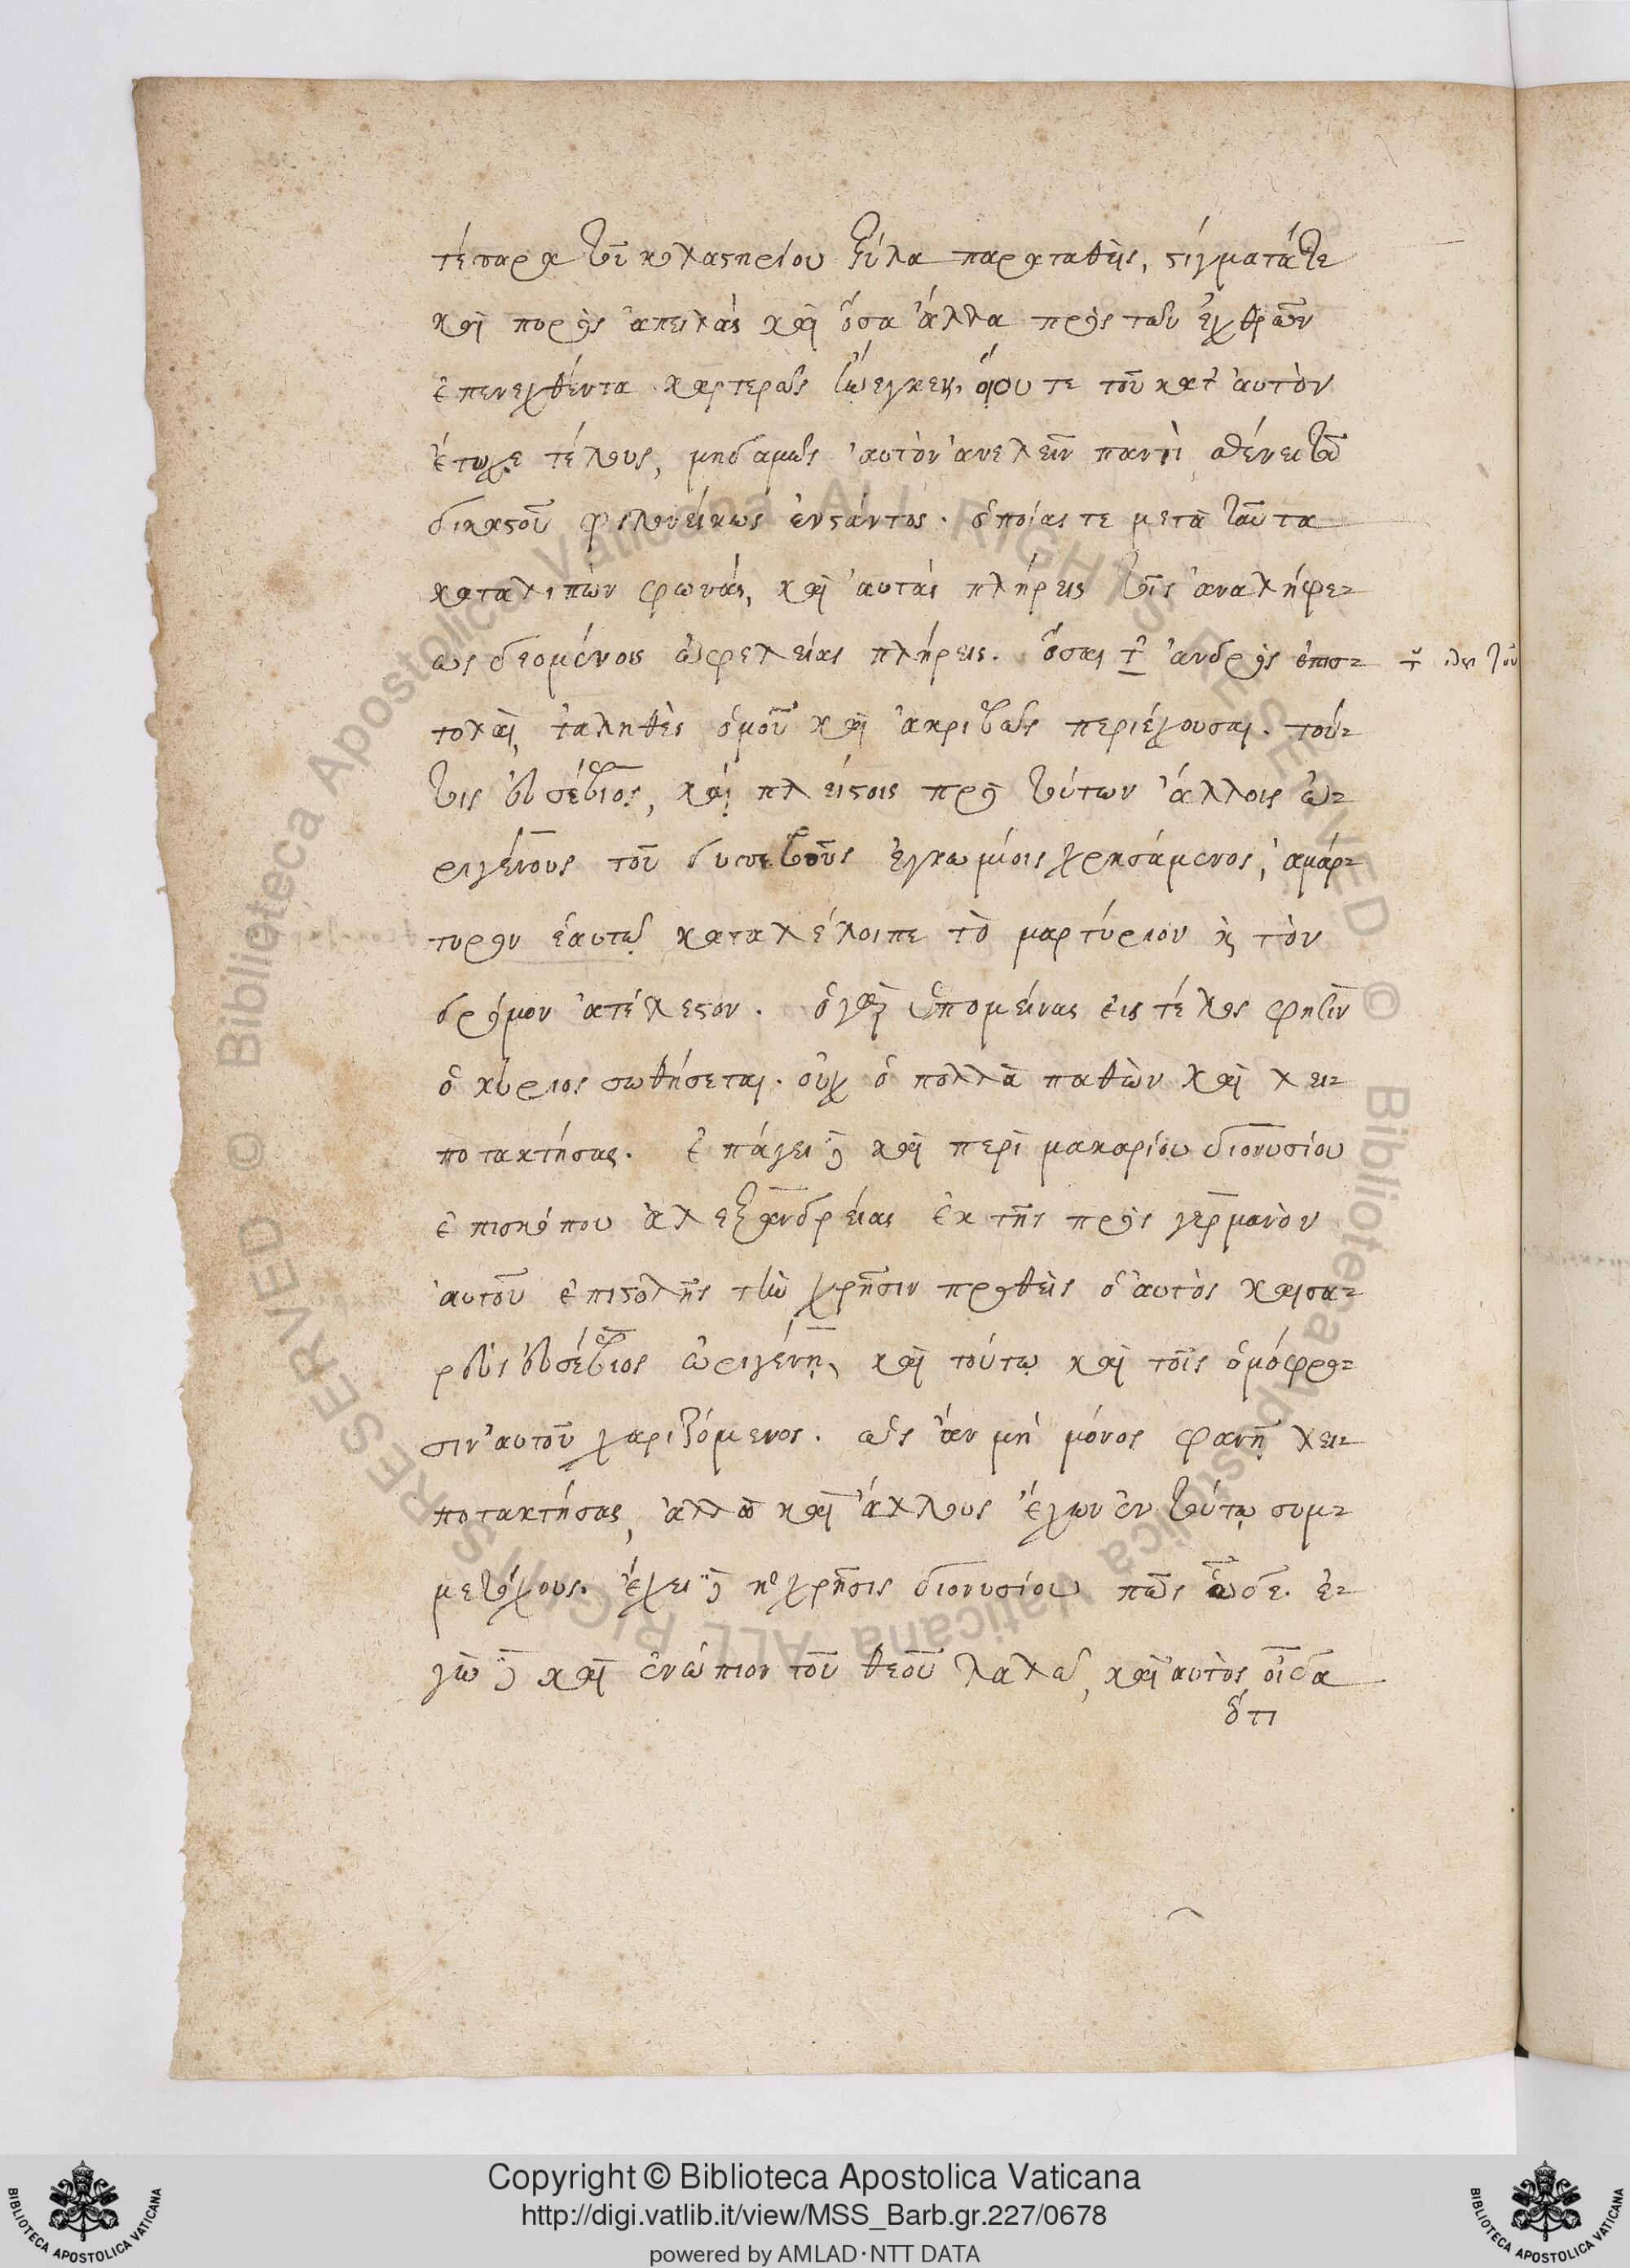 τέσσαρα τοῦ κολαστηρίου ξύλα παραταθεὶς, στίγματά τε
καὶ πυρὸς ἀπειλὰς καὶ ὅσα ἄλλα πρὸς τῶν ἐχθρῶν
ἐπενεχθέντα καρτερῶς ἤνεγκεν, οἵου τε τοῦ κατ' αὐτὸν
ἔτυχε τέλους, μηδαμῶς αὐτὸν ἀνελεῖν παντὶ σθένει τοῦ
δικαστοῦ φιλονείκως ἐνστάντος. ὁποίας τε μετὰ ταῦτα
καταλιπὼν φωνάς, καὶ αὐτὰς πλήρεις τοῖς ἀναλήψε-
ως δεομένοις ὠφελείας πλήρεις. ὅσαι τ̑ ἀνδρὸς ἐπισ-
τολαὶ, τἀληθὲς ὁμοῦ καὶ ἀκριβῶς περιέχουσαι. τού-
τοις εὐσέβιος, καὶ πλείστοις πρὸ τούτων ἄλλοις ὠ-
ριγένους τοῦ δυσσεβοῦς ἐγκωμίοις χρησάμενος, ἀμάρ-
τυρον ἑαυτῷ καταλέλοιπε τὸ μαρτύριον κ τὸν
δρόμον ἀτέλεστον. ὁ γὰρ ὑπομείνας εἰς τέλος φησὶν
ὁ κύριος σωθήσεται. οὐχ ὁ πολλὰ παθὼν καὶ λει-
ποτακτήσας. ἐπάγει δὲ καὶ περὶ μακαρίου διονυσίου
ἐπισκόπου ἀλεξανδρείας ἐκ τῆς πρὸς γερμανὸν
αὐτοῦ ἐπιστολῆς τὴν χρῆσιν προθεὶς ὁ αὐτὸς καισα-
ρεὺς εὐσέβιος ὠριγένῃ, καὶ τούτῳ καὶ τοῖς ὁμόφρο-
σιν αὐτοῦ χαριζόμενος. ὡς ἂν μὴ μόνος φανῇ λει-
ποτακτήσας, ἀλλὰ καὶ ἄλλους ἔχων ἐν τούτῳ συμ-
μετόχους. ἔχει δὲ ἡ χρῆσις διονυσίου πῶς ὧδε. ἐ-
γὼ δὲ καὶ ἐνώπιον τοῦ θεοῦ λαλῶ, καὶ αὐτὸς οἶδα
ὅτι
Copyright © Biblioteca Apostolica Vaticana
http://digi.vatlib.it/view/MSS_Barb.gr.227/0678
powered by AMLAD·NTT DATA